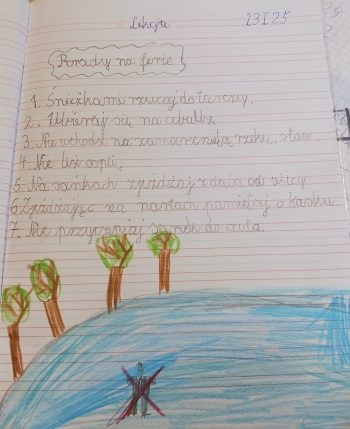 Lekcja 23 I 25
Porady na ferie
1. Śnieżkami rzucaj do tarczy.
2. Ubieraj się na cebulkę
3. Nie wchodź na zamarzniętą rzekę, staw.
4. Nie liż sopli.
5. Na sankach zjeżdżaj z dala od ulicy.
6. Zjeżdżając na nartach pamiętaj o kasku.
7. Nie przyczepiaj sanek do auta.